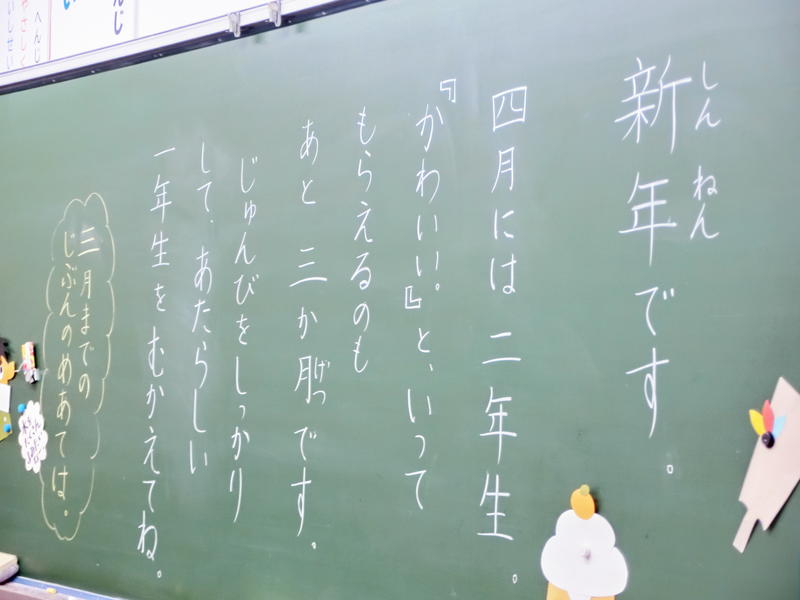 しん ねん
新年です。
四月には 二年生。
『かわいい。』と、いって
もらえるのも
あと 三か月です。
げつ
じゅんびをしっかり
して、あたらしい
一年生をむかえてね。
三月までの
じぶんのめあては。